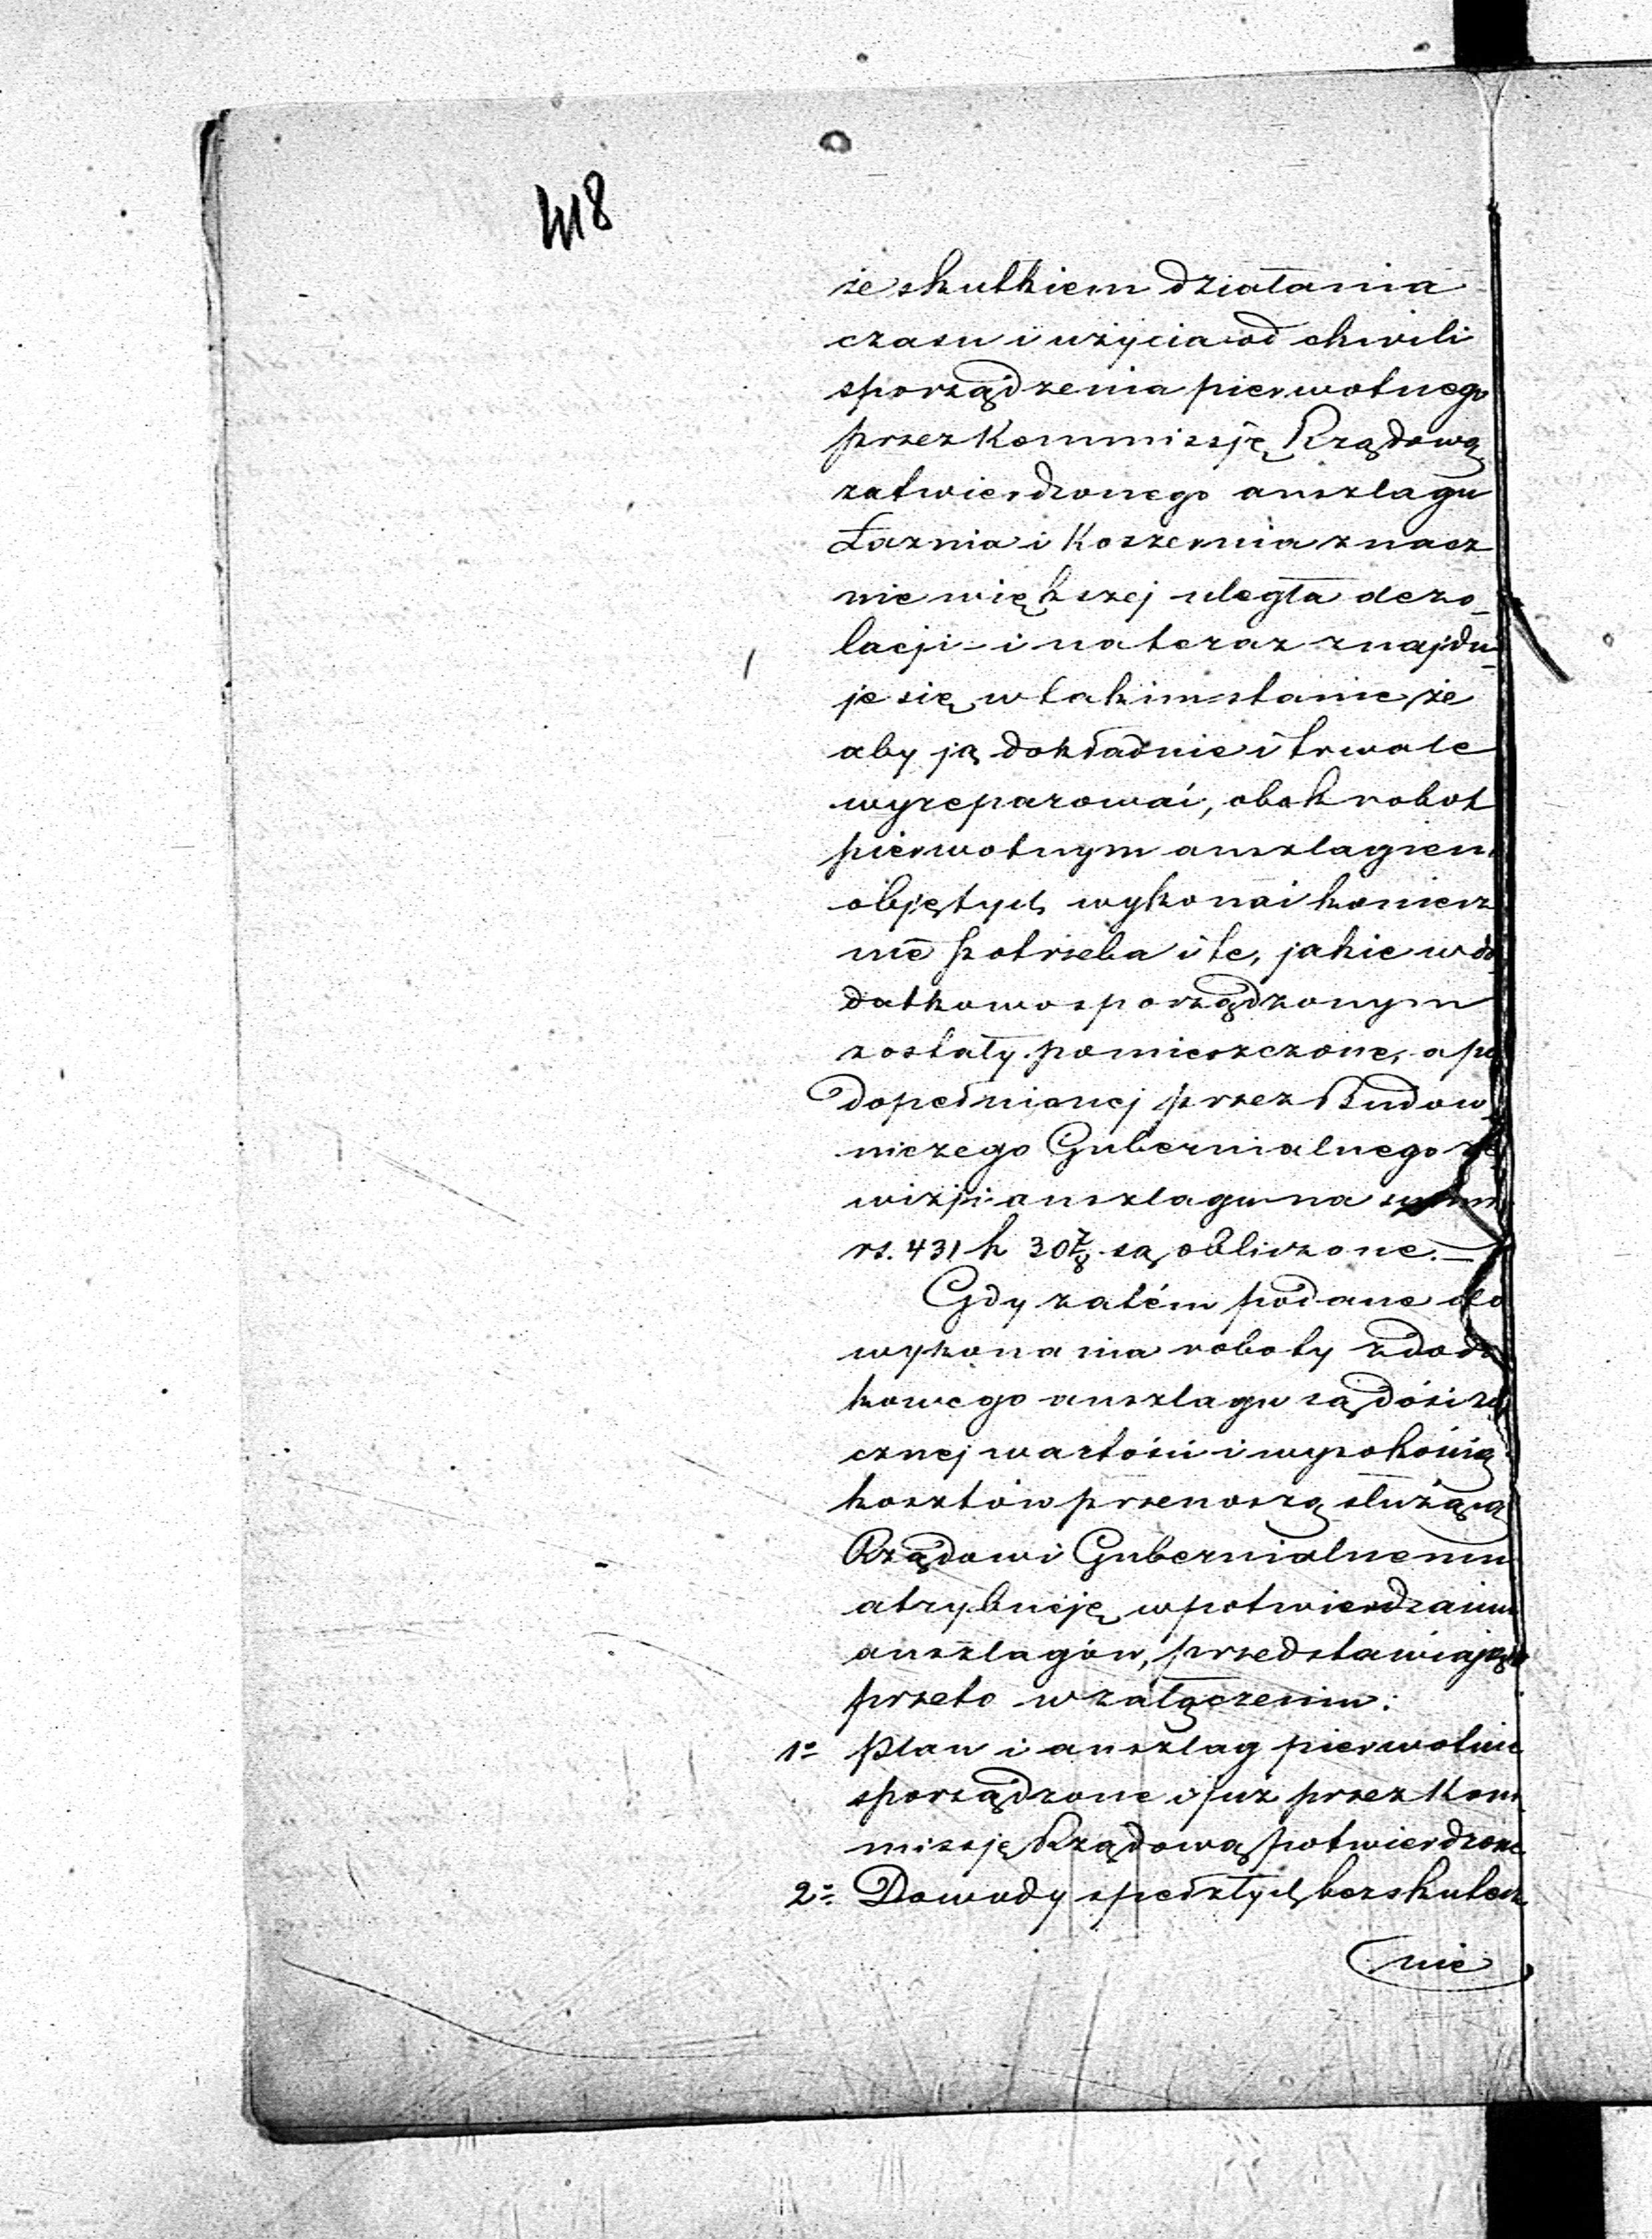 418
że skutkiem działania
czasu i użycia od chwili
sporządzenia pierwotnego
przez Kommissję Rządową
zatwierdzonego anszlagu
Łaznia i Koszernia znacz
nie większej uległa dezo_
lacji i na teraz znajdu_
je się w takim stanie, że
aby ją dokładnie i trwale
wyreparować, obok robot
pierwotnym anszlagiem
objętych wykonać koniecz
nie potrzeba i te, jakie w do
datkowo sporządzonym
zostały pomieszczone, a po
dopełnionej przez Budow_
niczego Gubernialnego re
wizji anszlagu na summ
rs. 431 k 30 7/8 są obliczone.—
Gdy zatém podane do
wykonania roboty z dodat
kowego anszlagu są dość zna
cznej wartości i wysokością
kosztów przenoszą służącą
Rządowi Gubernialnemu
atrybucję w potwierdzaniu
anszlagów, przedstawiając
przeto w załączeniu:
1º Plan i anszlag pierwotnie
sporządzone i już przez Kom
missję Rządową potwierdzone
2º Dowody spełzłych bezskutecz
nie